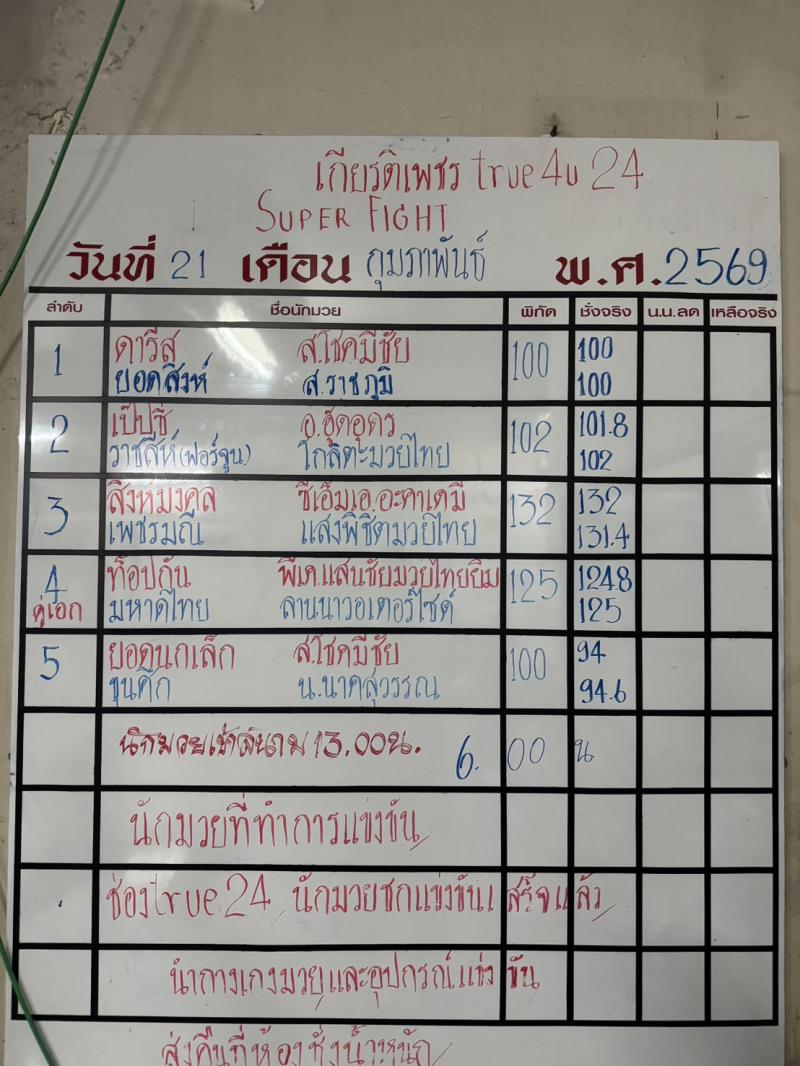 เกียรติเพชร true4u 24
SUPER FIGHT
วันที่ 21 เดือน กุมภาพันธ์ พ.ศ.2569
ลำดับ ชื่อนักมวย พิกัด ชั่งจริง น.น.ลด เหลือจริง
1 ดารีส ส.โชคมีชัย 100 100
ยอดสิงห์ ส.ราชภูมิ 100
2 เป๊ปซี่ อ.ฮุดอุดร 102 101.8
ราชสีห์(ฟอร์จูน) โกลิตะมวยไทย 102
3 สิงห์มงคล ซีเอ็มเอ.อะคาเดมี 132 132
เพชรมณี แสงพิชิตมวยไทย 131.4
4 ท็อปกัน พีเค.แสนชัยมวยไทยยิม 125 124.8
คู่เอก มหาดไทย ลานนาวอเตอร์ไซด์ 125
5 ยอดนกเล็ก ส.โชคมีชัย 100 94
ขุนศึก น.นาคสุวรรณ 94.6
นักมวยเข้าสนาม 13.00น. 6.00 น
นักมวยที่ทำการแข่งขัน
ช่อง true24 นักมวยชกแข่งขันเสร็จแล้ว
นำกางเกงมวยและอุปกรณ์แข่งขัน
ส่งคืนที่ห้องชั่งน้ำหนัก